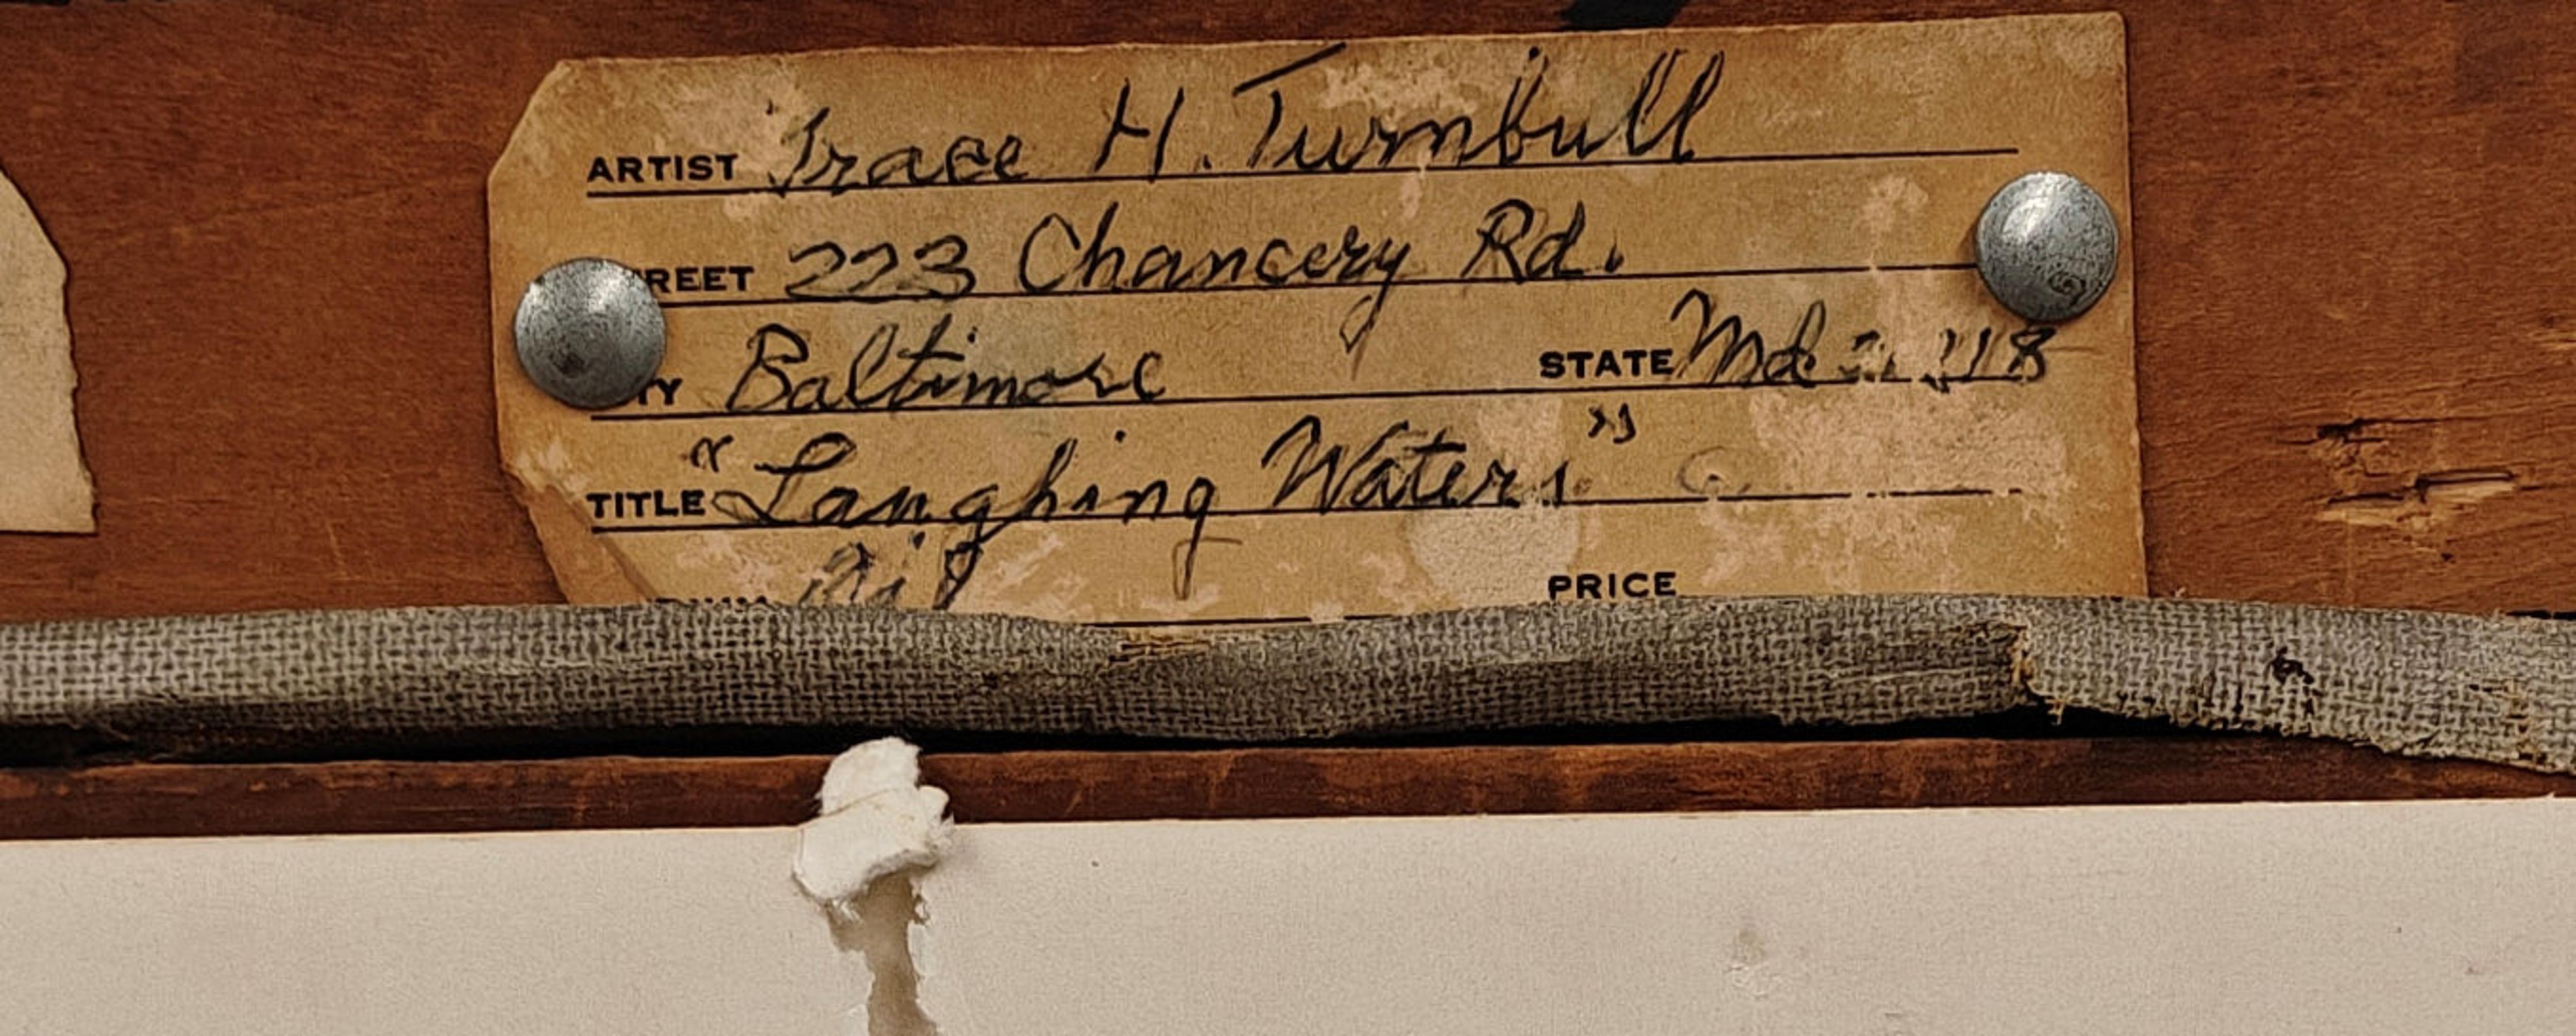 ARTIST Grace H. Turnbull
REET 223 Chancery Rd.
TY Baltimore STATE Md 21218
TITLE "Laughing Waters"
Oil PRICE